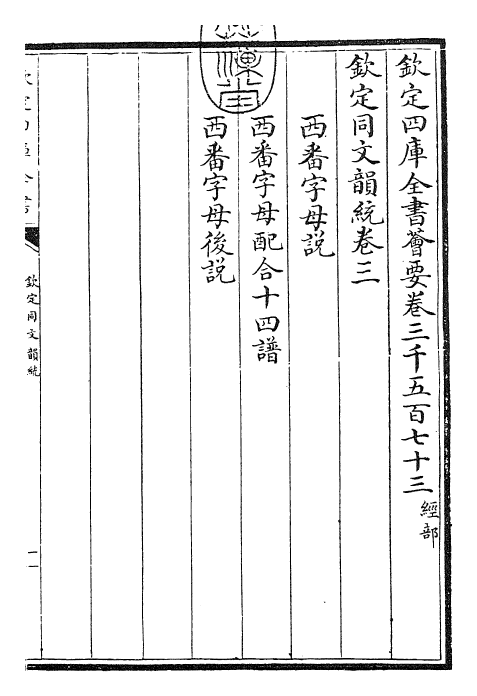 欽定四庫全書薈要卷三千五百七十三 經部
欽定同文韻統卷三
西番字母説
西番字母配合十四譜
西番字母後説
欽定同文韻統